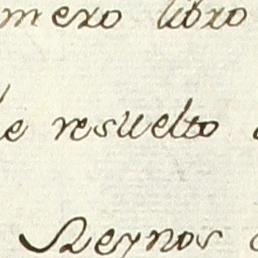 mero libro
le resuelto
Reynos